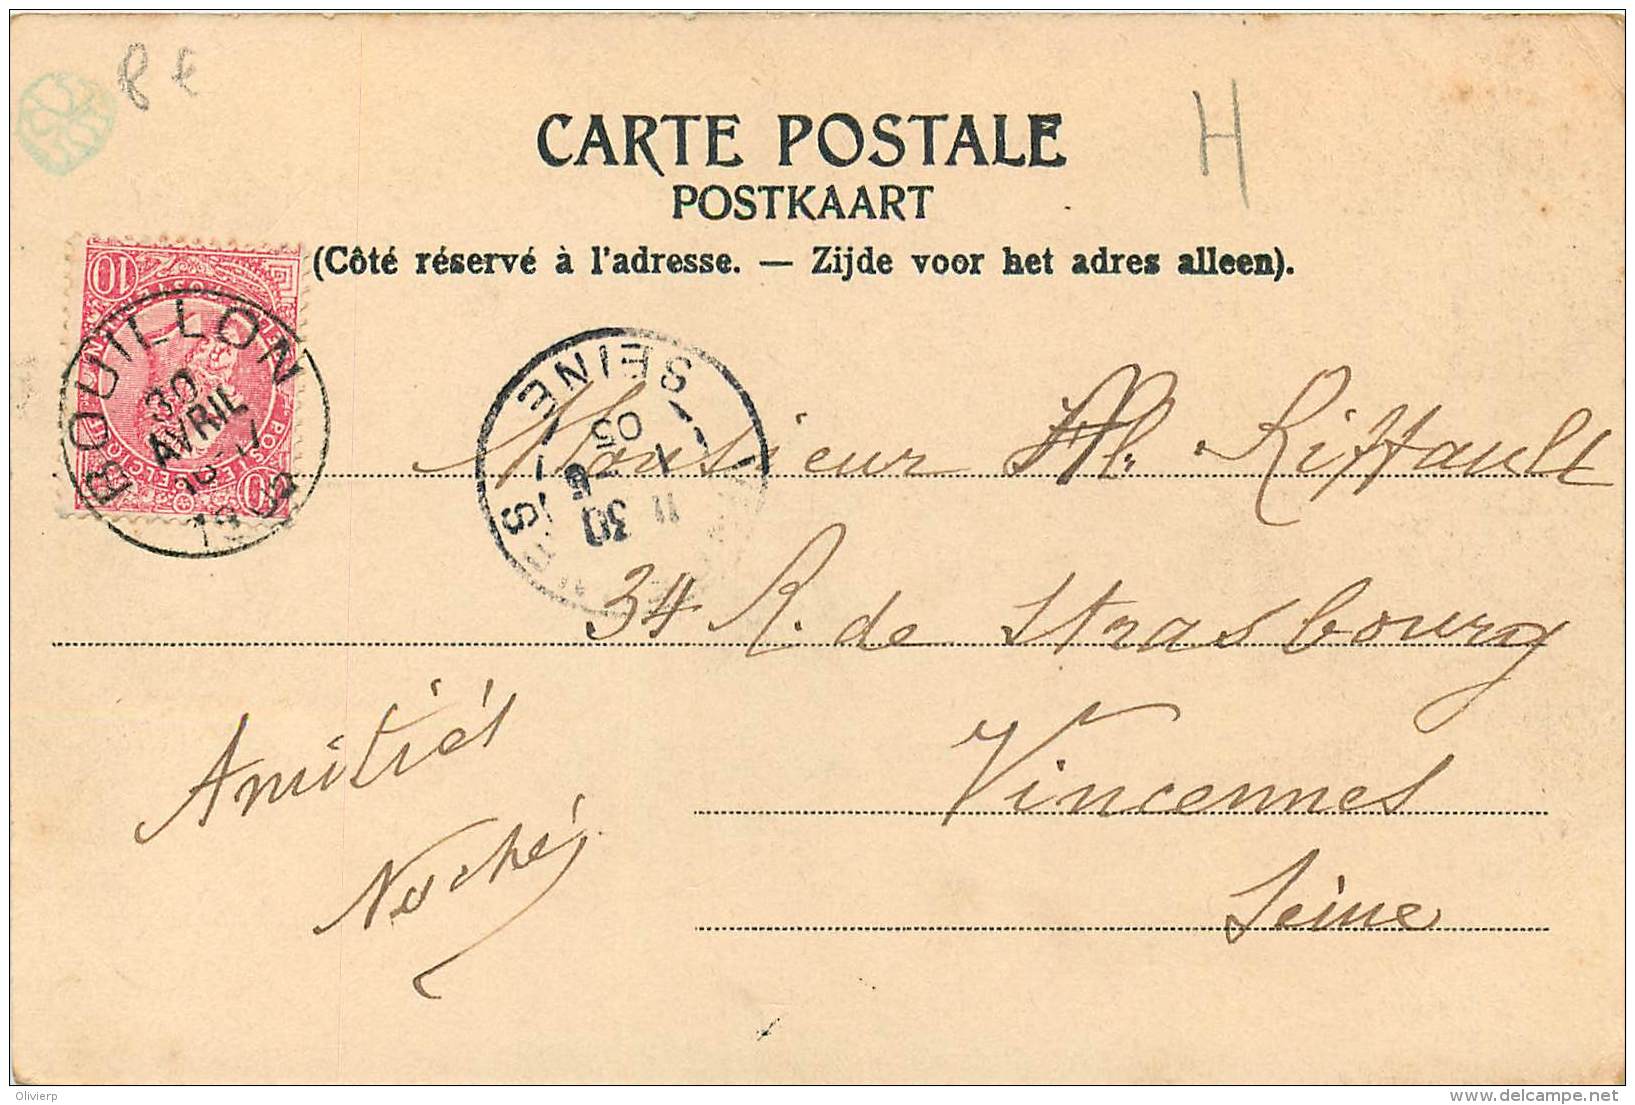 8 €
H
CARTE POSTALE
POSTKAART
(Côté réservé à l'adresse. — Zijde voor het adres alleen).
10
BOUILLON
30
AVRIL
10
SEINE
05
30
S
Monsieur M. Riffault
34 R. de Strasbourg
Vincennes
Seine
Amitiés
Olivierp
www.delcampe.net